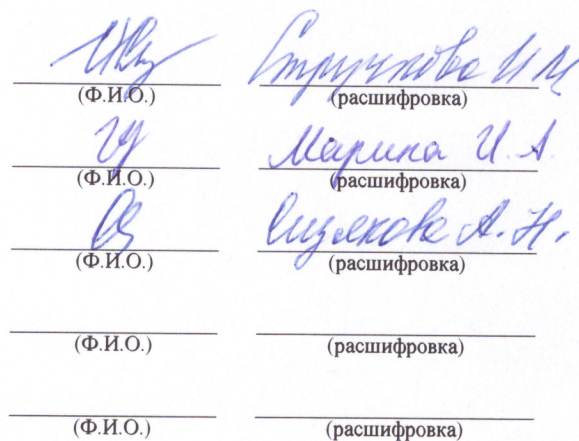 Стручкова И М
(Ф.И.О.) (расшифровка)
Марина И. А.
(Ф.И.О.) (расшифровка)
Сизякова А. Н.
(Ф.И.О.) (расшифровка)
(Ф.И.О.) (расшифровка)
(Ф.И.О.) (расшифровка)